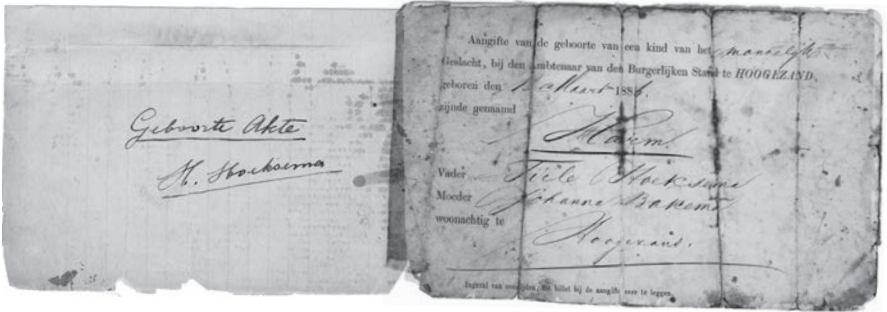 Geboorte Akte
H. Hoeksema
Aangifte van de geboorte van een kind van het mannelijk
Geslacht, bij den Ambtenaar van den Burgerlijken Stand te HOOGEZAND,
geboren den Maart 1886.
zijnde genaamd
Harm.
Vader Tiele Hoeksema
Moeder Johanna Bakema
woonachtig te
Hoogezand.
Ingeval van overlijden, dit billet bij de aangifte over te leggen.